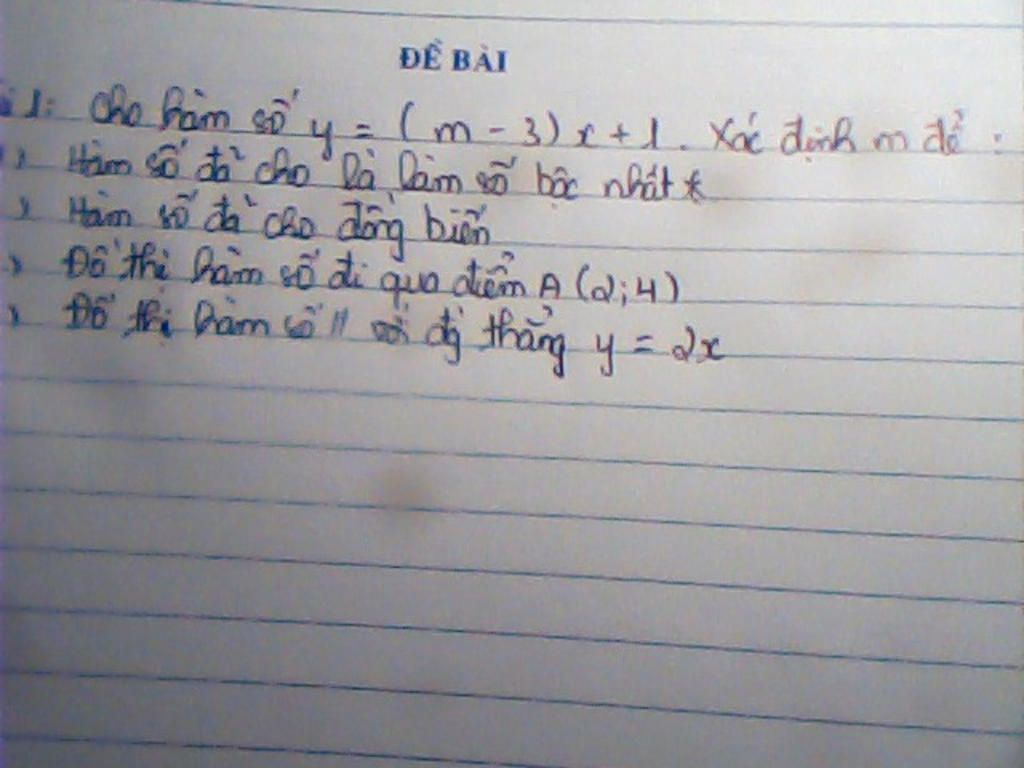 ĐỀ BÀI
i 1: Cho hàm số y = (m - 3) x + 1. Xác định m để :
) Hàm số đã cho là hàm số bậc nhất *
) Hàm số đã cho đồng biến
) Đồ thị hàm số đi qua điểm A (2; 4)
) Đồ thị hàm số // với đg thẳng y = 2x